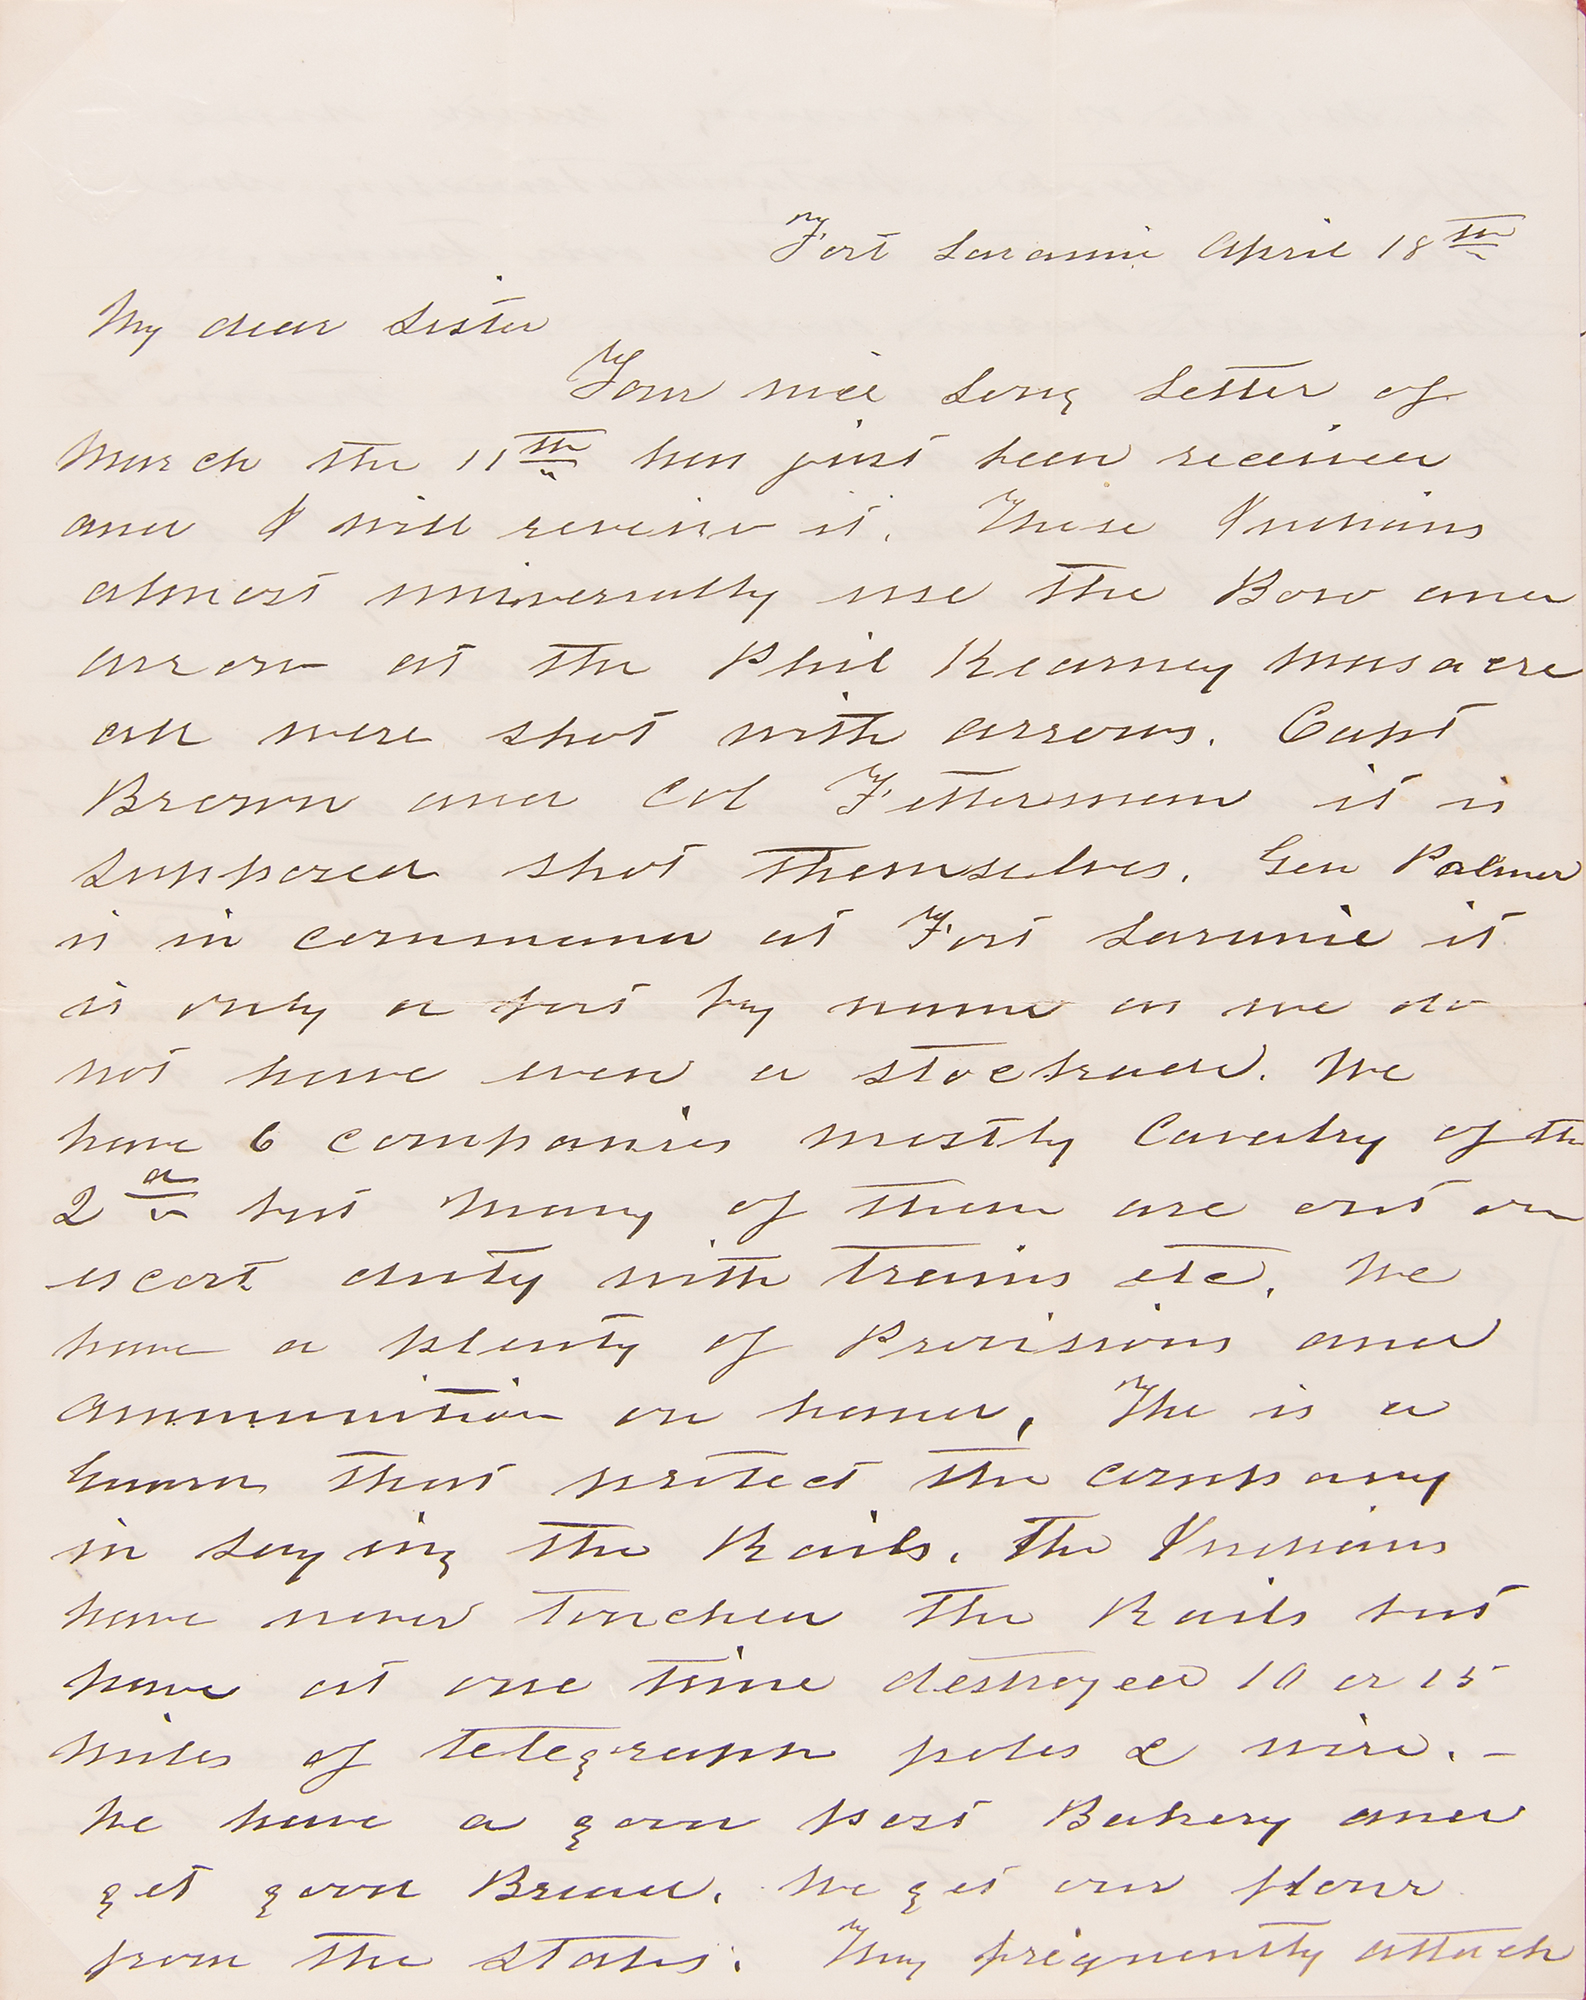 Fort Laramie April 18th
My dear Sister
Your nice long letter of
March the 11th has just been received
and I will review it. These Indians
almost universally use the Bow and
arrow at the Phil Kearney Masacre
all were shot with arrows. Capt
Brown and Col Fetterman it is
supposed shot themselves. Gen Palmer
is in command at Fort Laramie it
is only a fort by name as we do
not have even a stockade. We
have 6 companies mostly Cavalry of the
2d but many of them are out on
escort duty with trains etc. We
have a plenty of Provisions and
ammunition on hand, The is a
Guard that protect the company
in laying the Rails. The Indians
have never touched the Rails but
have at one time destroyed 10 or 15
miles of telegraph poles & wire. –
We have a good post Bakery and
get good Bread. We get our flour
from the States. They frequently attack